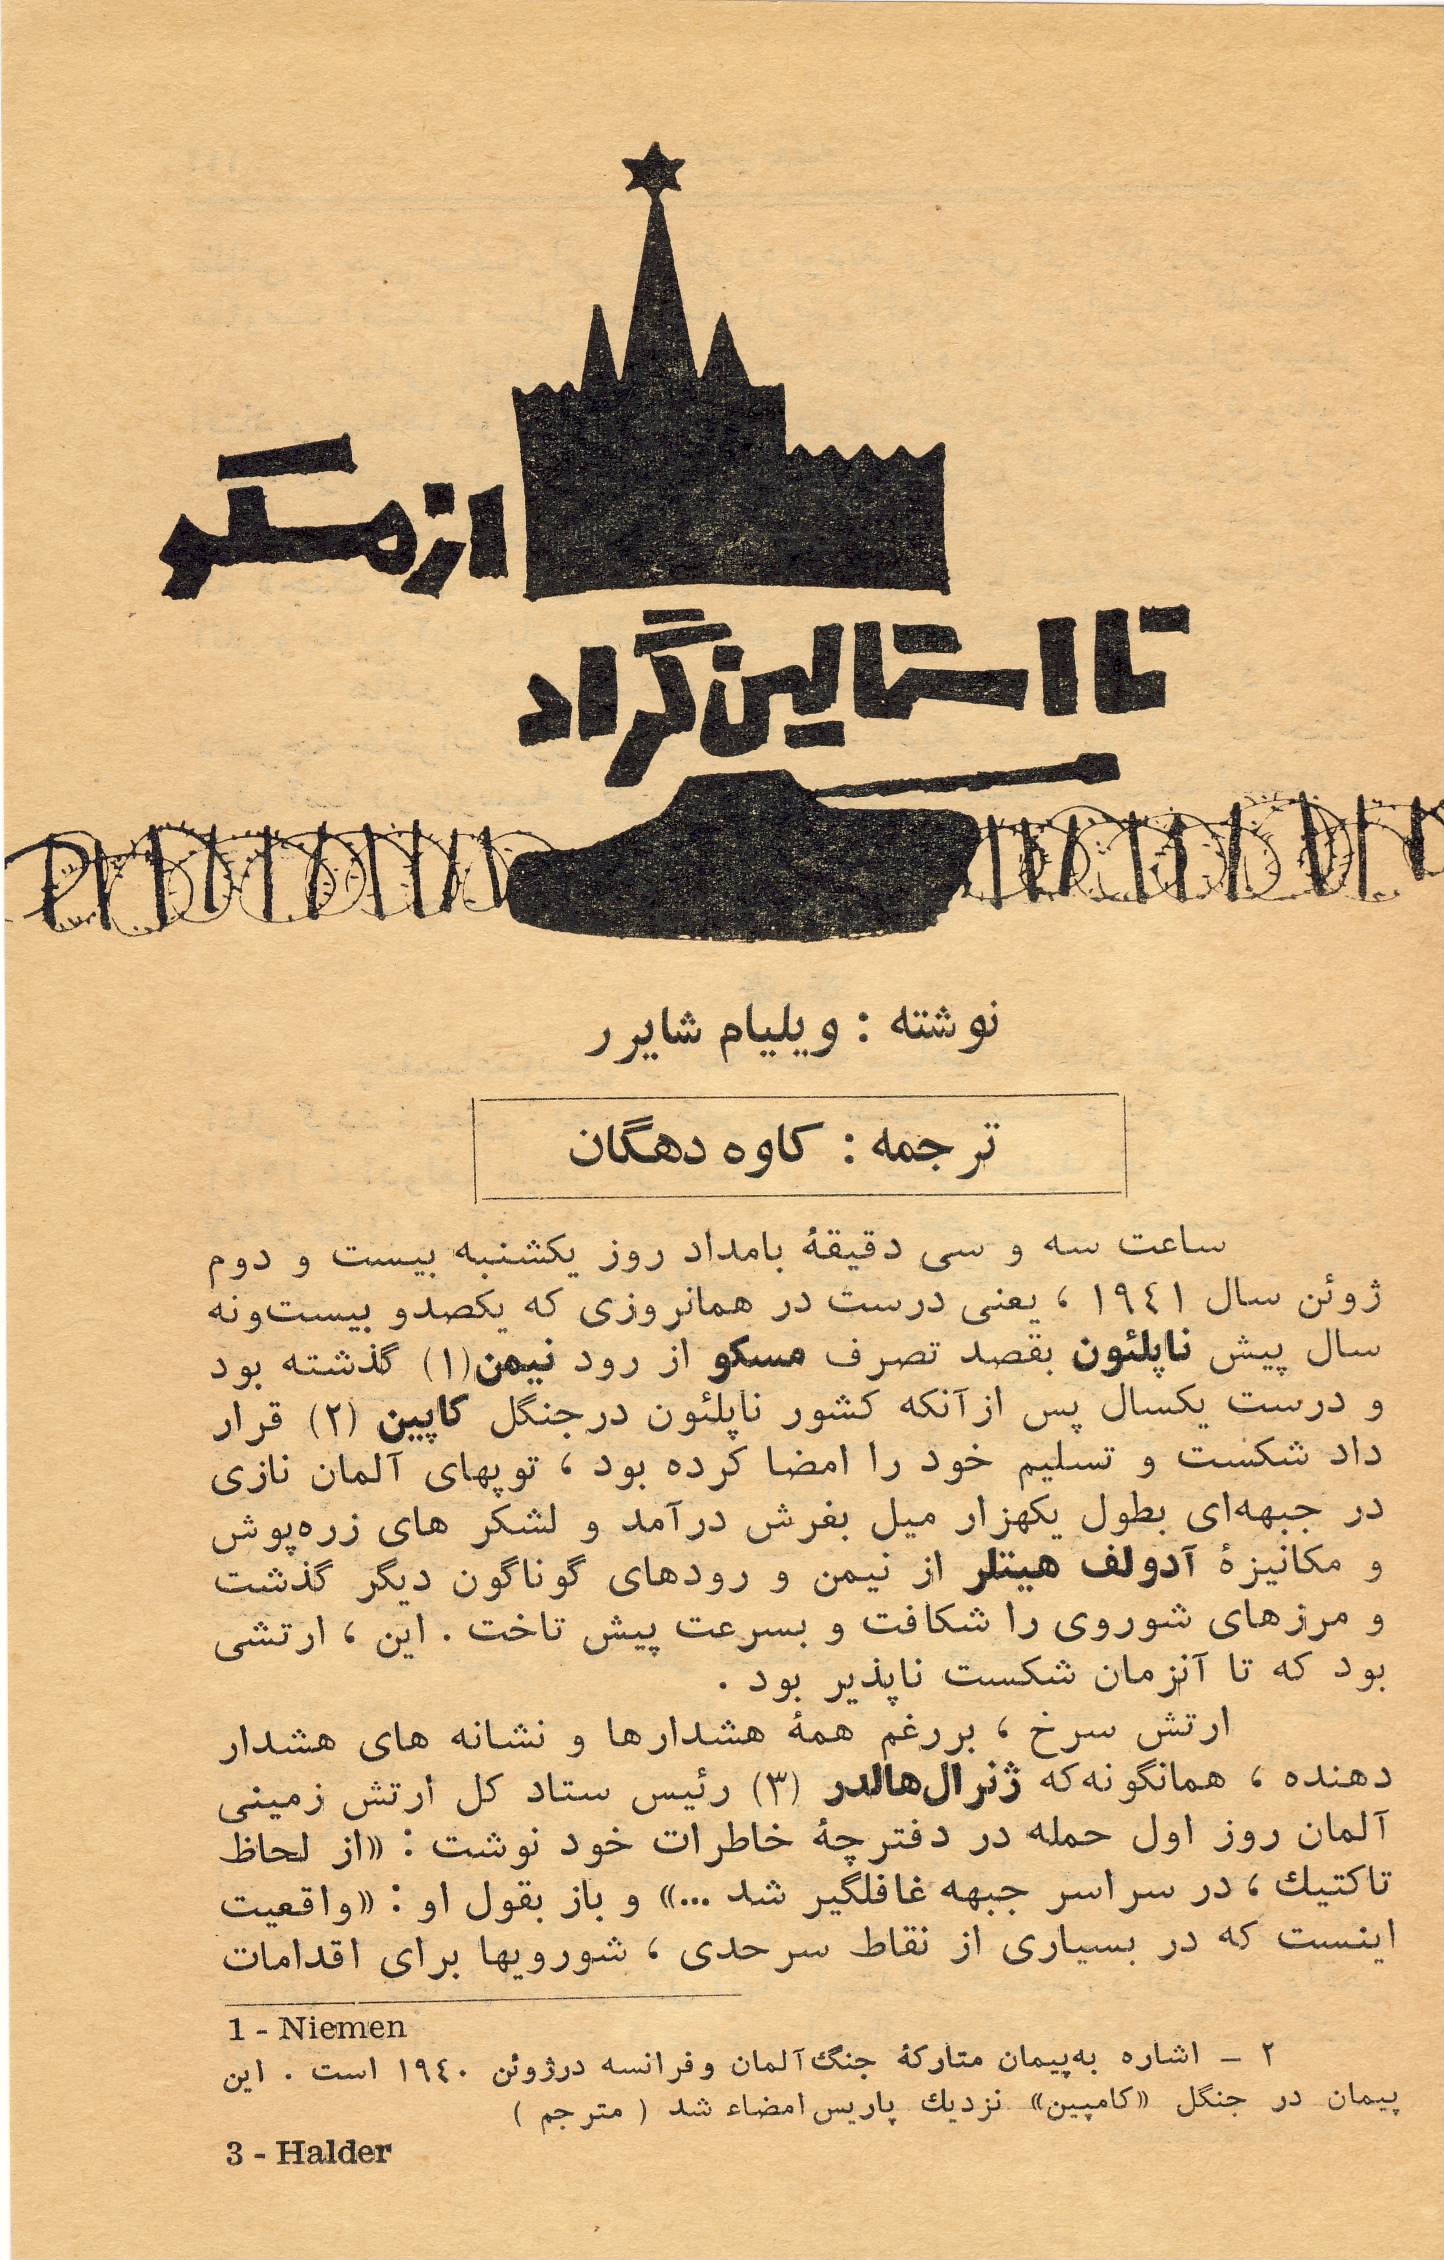 از مسکو
تا استالین‌گراد
نوشته : ویلیام شایرر
ترجمه : کاوه دهگان
ساعت سه و سی دقیقهٔ بامداد روز یکشنبه بیست و دوم
ژوئن سال ۱۹٤۱ ، یعنی درست در همانروزی که یکصدو بیست‌ونه
سال پیش ناپلئون بقصد تصرف مسکو از رود نیمن(۱) گذشته بود
و درست یکسال پس ازآنکه کشور ناپلئون درجنگل کاپین (۲) قرار
داد شکست و تسلیم خود را امضا کرده بود ، توپهای آلمان نازی
در جبهه‌ای بطول یکهزار میل بغرش درآمد و لشکر های زره‌پوش
و مکانیزهٔ آدولف هیتلر از نیمن و رودهای گوناگون دیگر گذشت
و مرزهای شوروی را شکافت و بسرعت پیش تاخت . این ، ارتشی
بود که تا آنزمان شکست ناپذیر بود .
ارتش سرخ ، بررغم همهٔ هشدارها و نشانه های هشدار
دهنده ، همانگونه‌که ژنرال‌هالدر (۳) رئیس ستاد کل ارتش زمینی
آلمان روز اول حمله در دفترچهٔ خاطرات خود نوشت : «از لحاظ
تاکتیك ، در سراسر جبهه غافلگیر شد ...» و باز بقول او : «واقعیت
اینست که در بسیاری از نقاط سرحدی ، شورویها برای اقدامات
1 - Niemen
۲ - اشاره به‌پیمان متارکهٔ جنگ‌آلمان وفرانسه درژوئن ۱۹٤۰ است . این
پیمان در جنگل «کامپین» نزدیك پاریس‌امضاء شد ( مترجم )
3 - Halder